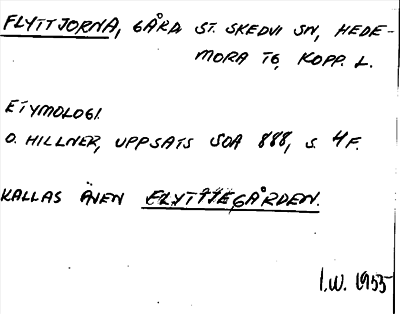 FLYTTJORNA, GÅRD. ST. SKEDVI SN, HEDE-
MORA TG, KOPP. L.
ETYMOLOGI.
O. HILLNER, UPPSATS SOA 888, S. 4F.
KALLAS ÄVEN FLYTTJEGÅRDEN.
I.W. 1955